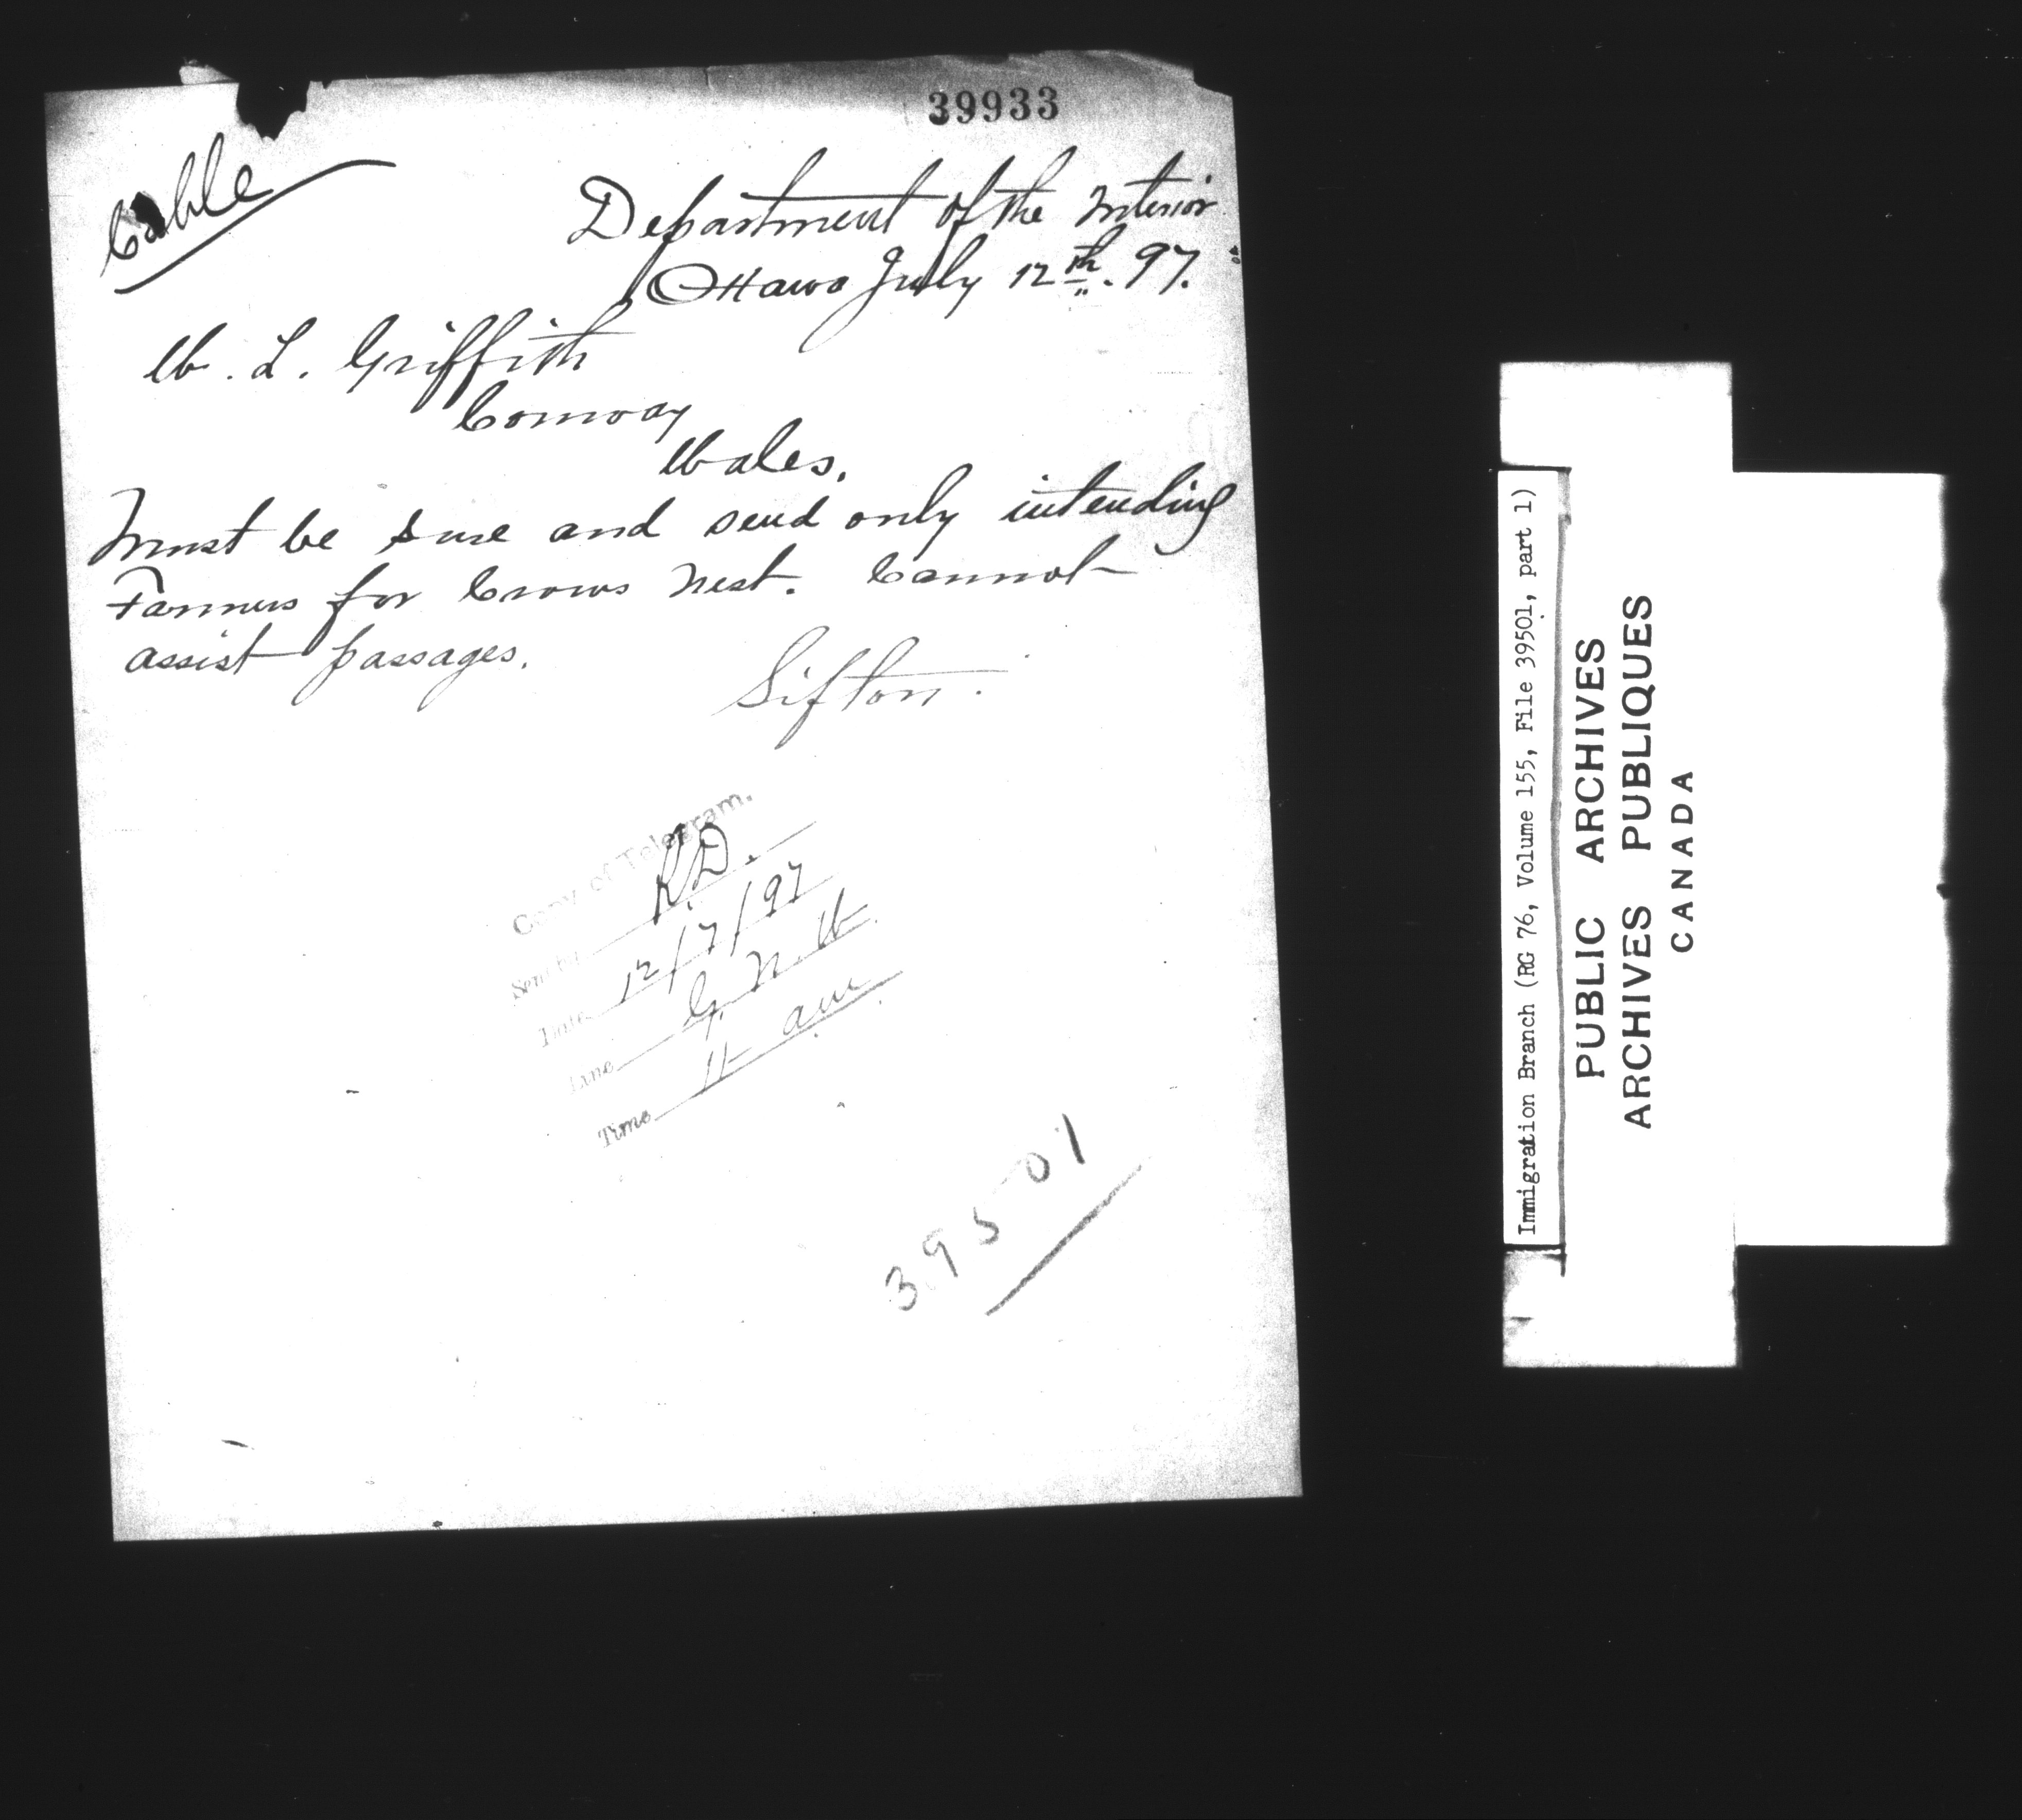 39933
Cable
Department of the Interior
Ottawa July 12th. 97.
W. L. Griffith
Conway
Wales.
Must be sure and send only intending
Farmers for Crows Nest. Cannot
assist passages.
Sifton.
Copy of Telegram.
Sent by K.D.
Date 12/7/97
Line G. N. W.
Time 11 am
39501
Immigration Branch (RG 76, Volume 155, File 39501, part 1)
PUBLIC ARCHIVES
ARCHIVES PUBLIQUES
CANADA